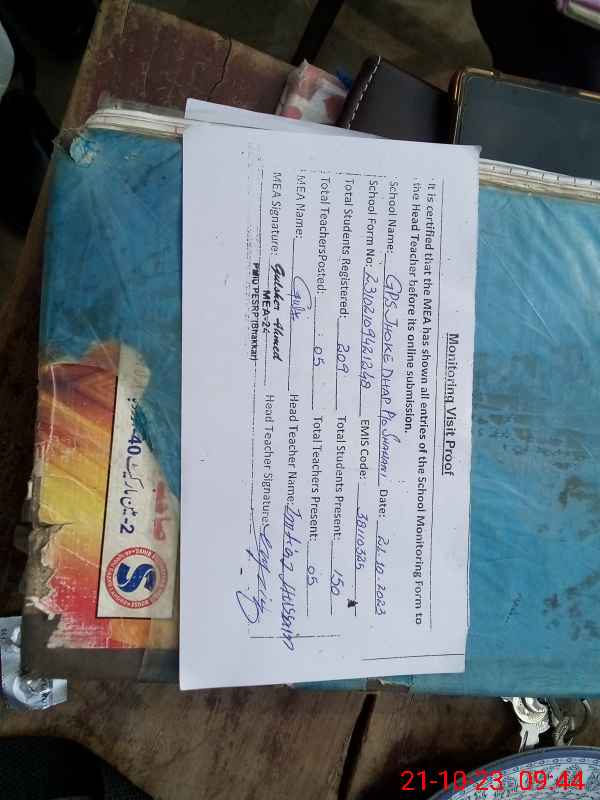 Monitoring Visit Proof
It is certified that the MEA has shown all entries of the School Monitoring Form to
the Head Teacher before its online submission.
School Name: GPS JHOKE DHAP P/o SHAHANI Date: 21.10.2023
School Form No: 23102109421248 EMIS Code: 38110325
Total Students Registered: 209 Total Students Present: 150
Total TeachersPosted: 05 Total Teachers Present: 05
MEA Name: Head Teacher Name: Imtiaz Hussain
MEA Signature: Gulsher Ahmed Head Teacher Signature:
MEA-24
PMIU PESRP (Bhakkar)
40
2-
S
21-10-23 09:44